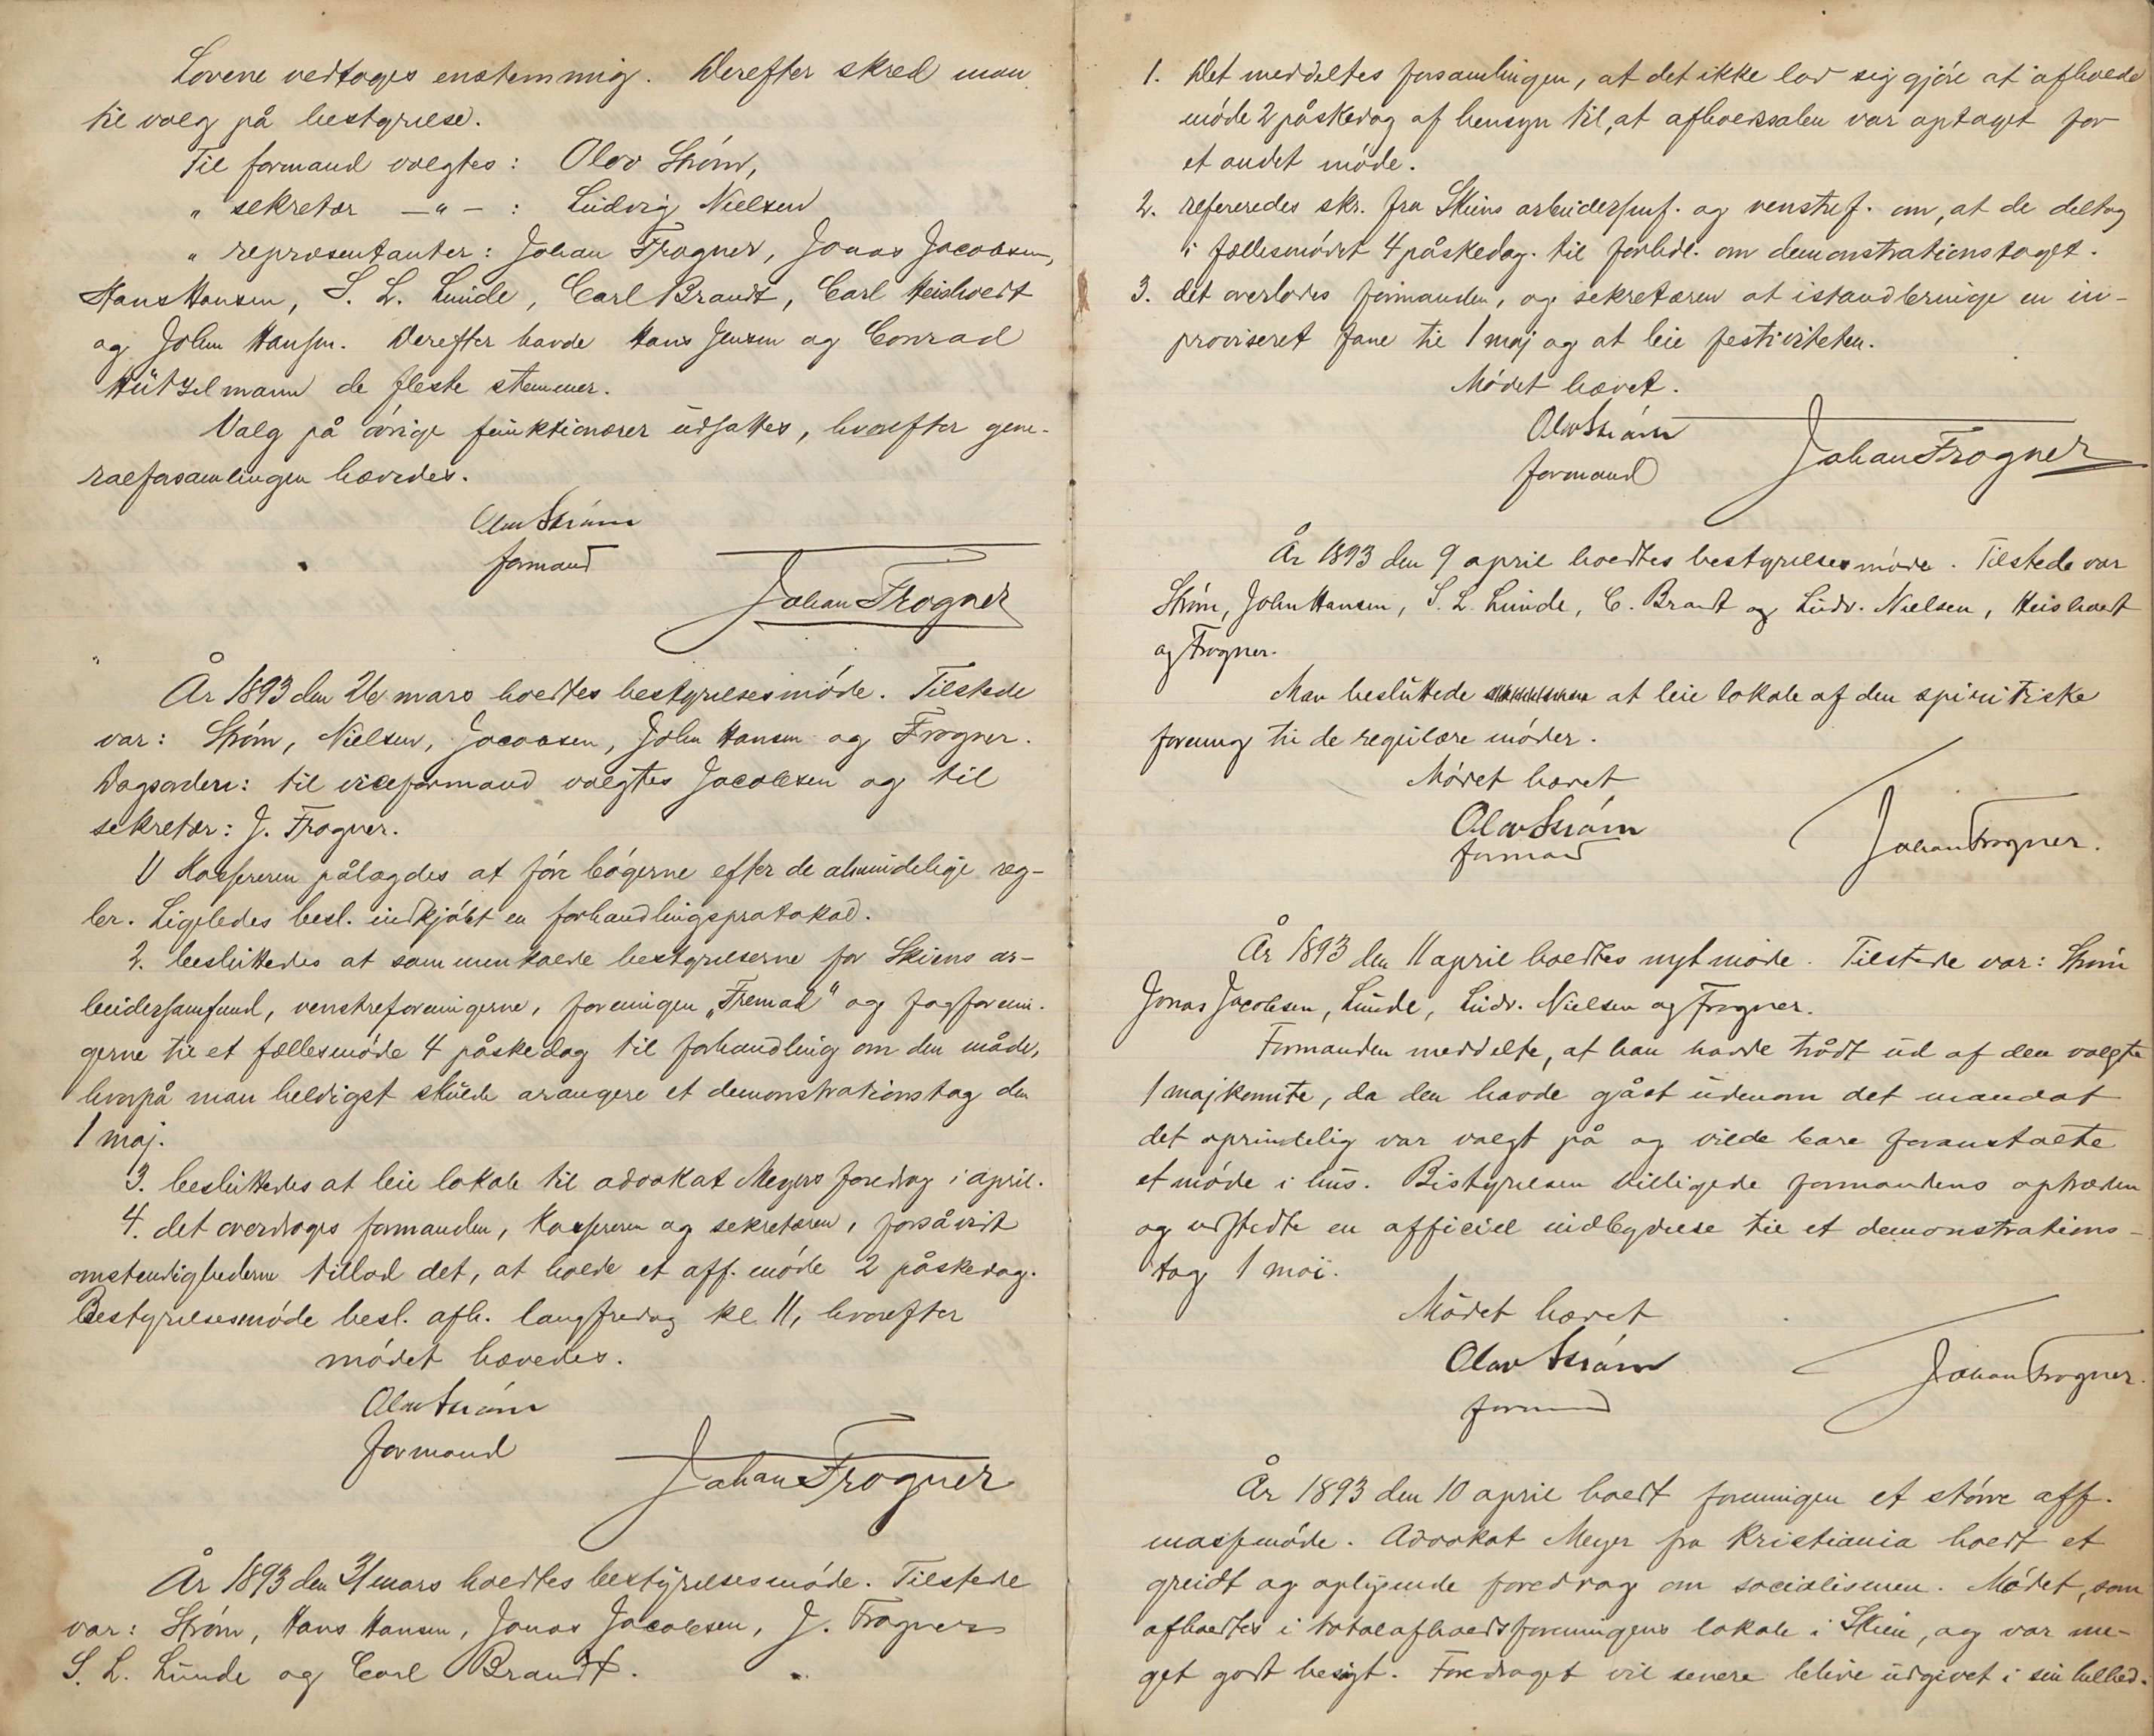 Lovene vedtoges enstemmig. Derefter skred man
til valg på bestyrelse.
Til formand valgtes: Olav Strøm,
„ sekretær —„— : Ludvig Nielsen
„ repræsentanter: Johan Frogner, Jonas Jacobsen,
Hans Hansen, S. L. Lunde, Carl Brandt, Carl Heisholt
og John Hansen. Derefter havde Hans Jensen og Conrad
Hützelmann de fleste stemmer.
Valg på øvrige funktionærer udsattes, hvorefter gene-
ralforsamlingen hævedes.
Olav Strøm
formand
Johan Frogner
År 1893 den 26 mars holdtes bestyrelsesmøde. Tilstede
var: Strøm, Nielsen, Jacobsen, John Hansen og Frogner.
Dagsorden: til viceformand valgtes Jacobsen og til
sekretær: J. Frogner.
1) Kassereren pålagdes at føre bøgerne efter de almindelige reg-
ler. Ligeledes besl. indkjøbt en forhandlingsprotokol.
2. besluttedes at sammenkalde bestyrelserne for Skiens ar-
beidersamfund, venstreforeningerne, foreningen „Fremad" og fagforenin-
gerne til et fællesmøde 4 påskedag til forhandling om den måde,
hvorpå man heldigst skulde arangere et demonstrationstog den
1 maj.
3. besluttedes at leie lokale til advokat Meyers foredrag i april.
4. det overdroges formanden, kassereren og sekretæren, forsåvidt
omstendighederne tillod det, at holde et off. møde 2 påskedag.
Bestyrelsesmøde besl. afh. langfredag kl 11, hvorefter
mødet hævedes.
Olav Strøm
formand
Johan Frogner
År 1893 den 31 mars holdtes bestyrelsesmøde. Tilstede
var: Strøm, Hans Hansen, Jonas Jacobsen, J. Frogner
S. L. Lunde og Carl Brandt.
1. Det meddeltes forsamlingen, at det ikke lod sig gjøre at afholde
møde 2 påskedag af hensyn til, at afholdssalen var optaget for
et andet møde.
2. refereredes skr. fra Skiens arbeidersmf. og venstref. om, at de deltog
i fællesmødet 4 påskedag. til forhdl. om demonstrationstoget.
3. det overlodes formanden, og sekretæren at istandbringe en im-
proviseret fane til 1 maj og at leie festiviteten.
Mødet hævet.
Olav Strøm
formand
Johan Frogner
År 1893 den 9 april holdtes bestyrelsesmøde. Tilstede var
Strøm, John Hansen, S. L. Lunde, C. Brandt og Ludv. Nielsen, Heisholt
og Frogner.
Man besluttede at leie lokale af den spiritistiske
forening til de regulære møder.
Mødet hævet
Olav Strøm
formand
Johan Frogner.
År 1893 den 11 april holdtes nyt møde. Tilstede var: Strøm
Jonas Jacobsen, Lunde, Ludv. Nielsen og Frogner.
Formanden meddelte, at han havde trådt ud af den valgte
1 majkomite, da den havde gået udenom det mandat
det oprindelig var valgt på og vilde bare foranstalte
et møde i hus. Bistyrelsen billigede formandens optræden
og udstedte en officiel indbydelse til et demonstrations-
tog 1 mai.
Mødet hævet
Olav Strøm
formand
Johan Frogner.
År 1893 den 10 april holdt foreningen et større off.
massemøde. Advokat Meyer fra Kristiania holdt et
greidt og oplysende foredrag om socialismen. Mødet, som
afholdtes i totalafholdsforeningens lokale i Skien, og var me-
get godt besøgt. Foredraget vil senere blive udgivet i sin helhed.